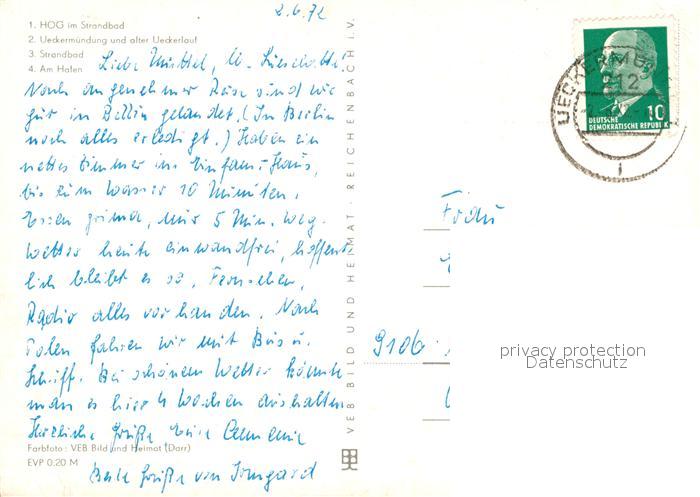 2.6.72
1. HOG im Strandbad
2. Ueckermündung und alter Ueckerlauf
3. Strandbad
4. Am Hafen
Liebe
Nach angenehmer Reise sind wir
gut in Bellin gelandet. (In Berlin
noch alles erledigt.) Haben ein
nettes Zimmer im Einfam.-Haus,
bis zum Wasser 10 Minuten,
Essen prima, nur 5 Min. weg.
Wetter heute einwandfrei, hoffent-
lich bleibt es so. Fernsehen,
Radio alles vorhanden. Nach
Polen fahren wir mit Bus u.
Schiff. Bei schönem Wetter könnte
man es hier 4 Wochen aushalten
Herzliche Grüße Eure
Farbfoto: VEB Bild und Heimat (Darr)
EVP 0.20 M
Beste Grüße von Irmgard
VEB BILD UND HEIMAT · REICHENBACH i. V.
UECKERMÜN
212
10
DEUTSCHE
DEMOKRATISCHE REPUBLIK
Frau
9106
privacy protection
Datenschutz